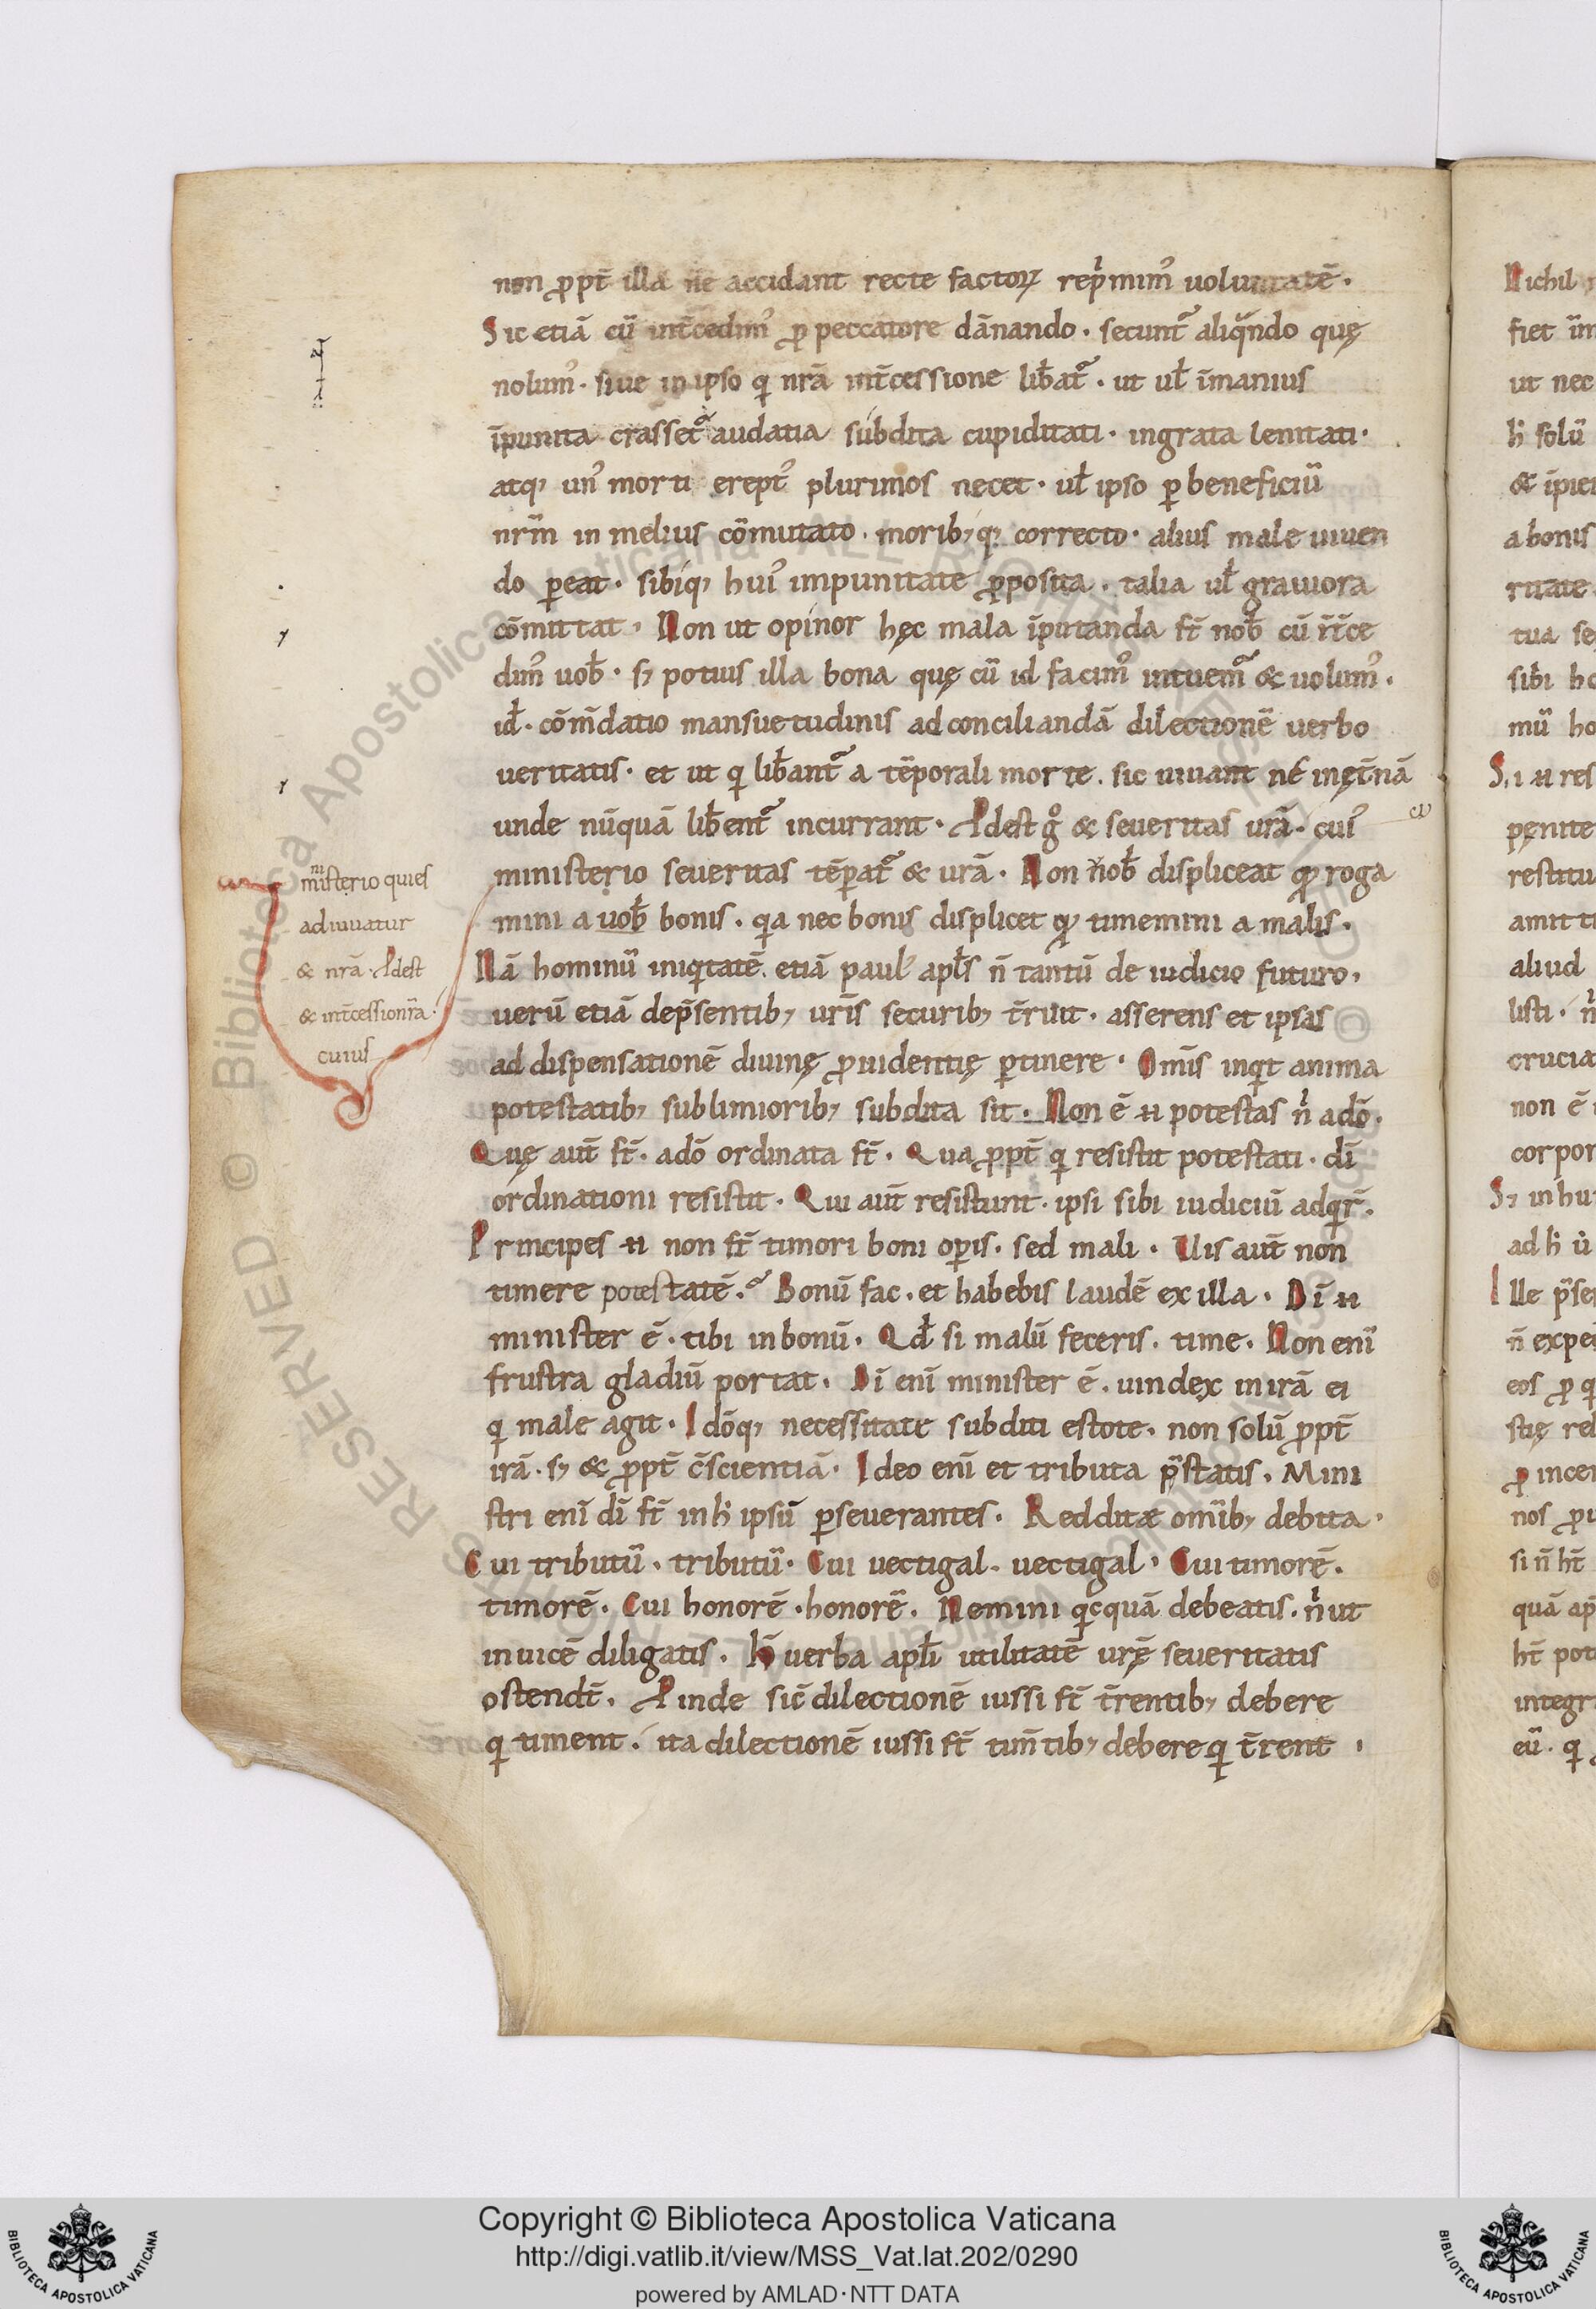 non ꝓpt̄ illa ne accidant recte factoꝝ rep̍mim᾽ uoluntatē.
Sic etiā cū int̄cedim᾽ ꝓ peccatore dānando. secunt᷑ aliq̄ndo quę
nolum᾽. siue in ipso q̍ nrā int̄cessione lib̄at᷑. ut ul̄ īmanius
īpunita crasset᷑ audatia subdita cupiditati. ingrata lenitati.
atq; un᾽ morti erept᾽ plurimos necet. ul̄ ipso ꝑ beneficiū
nrm̄ in melius cōmutato. morib;q; correcto. alius male uiuen
do ꝑeat. sibiq; hui᾽ impunitate ꝓposita. talia ul̄ grauiora
cōmittat. Non ut opinor hęc mala īputanda st̄ nob̄ cū īt̄ce
dim᾽ uob̄. s; potius illa bona quę cū id facim᾽ intuem᷑ & uolum᾽.
id̄. cōm̄datio mansuetudinis ad conciliandā dilectionē uerbo
ueritatis. et ut q̍ lib̄ant᷑ a tēporali morte. sic uiuant né in ęt̄nā
unde nūquā lib̄ent᷑ incurrant. Adest g̊ & seueritas urā. cui᾽
ministerio seueritas tēꝑat᷑ & urā. Non ñob̄ displiceat qđ roga
mini a uob̄ bonis. q̍a nec bonis displicet qđ timemini a malis.
Nā hominū iniq̍tatē. etiā paul᾽ apl̄s n̄ tantū de iudicio futuro.
uerū etiā dep̄sentib; urīs securib; t̄ruit. asserens et ipsas
ad dispensationē diuinę ꝓuidentię ꝑtinere. Omīs inq̍t anima
potestatib; sublimiorib; subdita sit. Non ē n potestas n̍ adō.
Quę aut̄ st̄. adō ordinata st̄. Qua ꝓpt̄ q̍ resistit potestati. dī
ordinationi resistit. Qui aut̄ resistunt. ipsi sibi iudiciū adq̍r̄.
Principes n non st̄ timori boni oꝑis. sed mali. Uis aut̄ non
timere potestatē. Bonū fac. et habebis laudē ex illa. Dī n
minister ē. tibi in bonū. Qd̄ si malū feceris. time. Non enī
frustra gladiū portat. Dī enī minister ē. uindex in irā ei
q̍ male agit. Idōq; necessitate subditi estote. non solū ꝓpt̄
irā. s; & ꝓpt̄ c̄scientiā. Ideo enī et tributa p̄statis. Mini
stri enī dī st̄ in h̍ ipsū ꝑseuerantes. Redditæ omīb; debita.
Cui tributū. tributū. Cui uectigal. uectigal. Cui timorē.
timorē. Cui honorē. honorē. Nemini q̍cquā debeatis. n̍ ut
inuicē diligatis. H̄ verba apl̄i utilitatē urę̄ seueritatis
ostendt̄. Pinde sic̄ dilectionē iussi st̄ t̄rentib; debere
q̍ timent. ita dilectionē iussi st̄ tim̄tib; debere q̍ t̄rent
misterio quies
adiuuatur
& nrā. Adest
& int̄cessionr̄a.
cuius
Nichil
fiet
ut nec
h̍ solū
abonis
ritate
tua se
sibi ho
mū ho
Si n res
pęnite
restitu
amitti
aliud
listi. n̍
crucia
non ē
corpor
S; in hu
ad h̍
Ille p̄se
n̄ expe
eos ꝓ q̍
stię rel
nos
si n̄ ht̄
quā ap
ht̄ pot
integr
eū. q̍
Copyright © Biblioteca Apostolica Vaticana
http://digi.vatlib.it/view/MSS_Vat.lat.202/0290
powered by AMLAD·NTT DATA
BIBLIOTECA APOSTOLICA VATICANA
BIBLIOTECA APOSTOLICA VATICANA